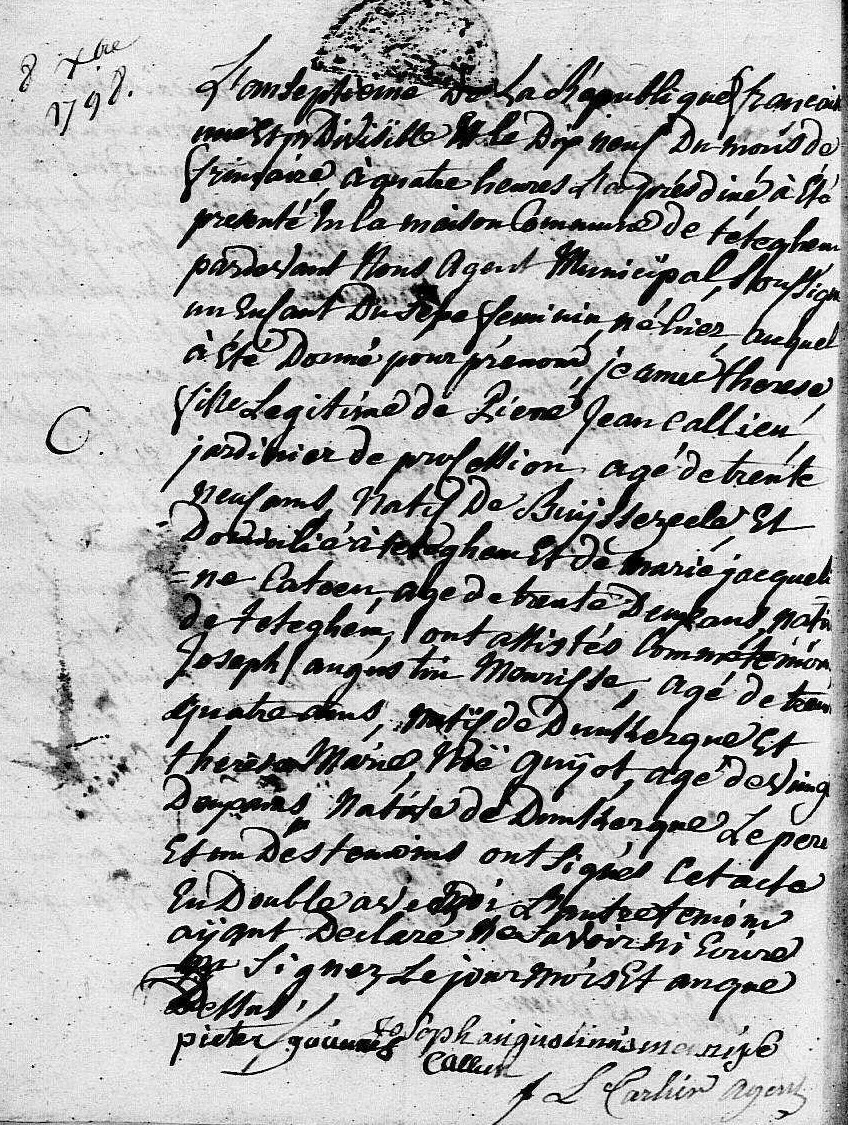 8 xbre
1798.
L'an septieme De La Republique francais
une Et indivisible Et le Dix neuf Du mois de
frimaire, à quatre heures L'aprèsdiné à Eté
presenté En la maison Commune de téteghem
pardevant Nous Agent Municipal, Soussign
un Enfant Du sexe feminin, né hier, auquel
à Eté Donné pour prénom, jeanne therese
fille Legitime de Pierre Jean Callieu,
jardinier de profession agé de trente
neuf ans, Natif De Buysscheele Et
Domicilié à teteghem Et de marie jacqueli
=ne Catoen, age de trente Deux ans, nativ
de teteghem, ont assistés Comme témoin
Joseph augustin Mourisse, agé de tren
quatre ans, natif de Dunkerque Et
therese Marie Noë Guÿot, agé de Vingt
Deux ans Native de Dunkerque Le pere
Et un Des temoins ont Signés Cet acte
En Double avec Moi L'autre temoin
aÿant Declaré Ne Savoir ni Ecrire
Signer Le jour mois Et an que
Dessus
pieter Joannes Joseph augustinus mourisse
Callieu
f L Carlier Agent
C.